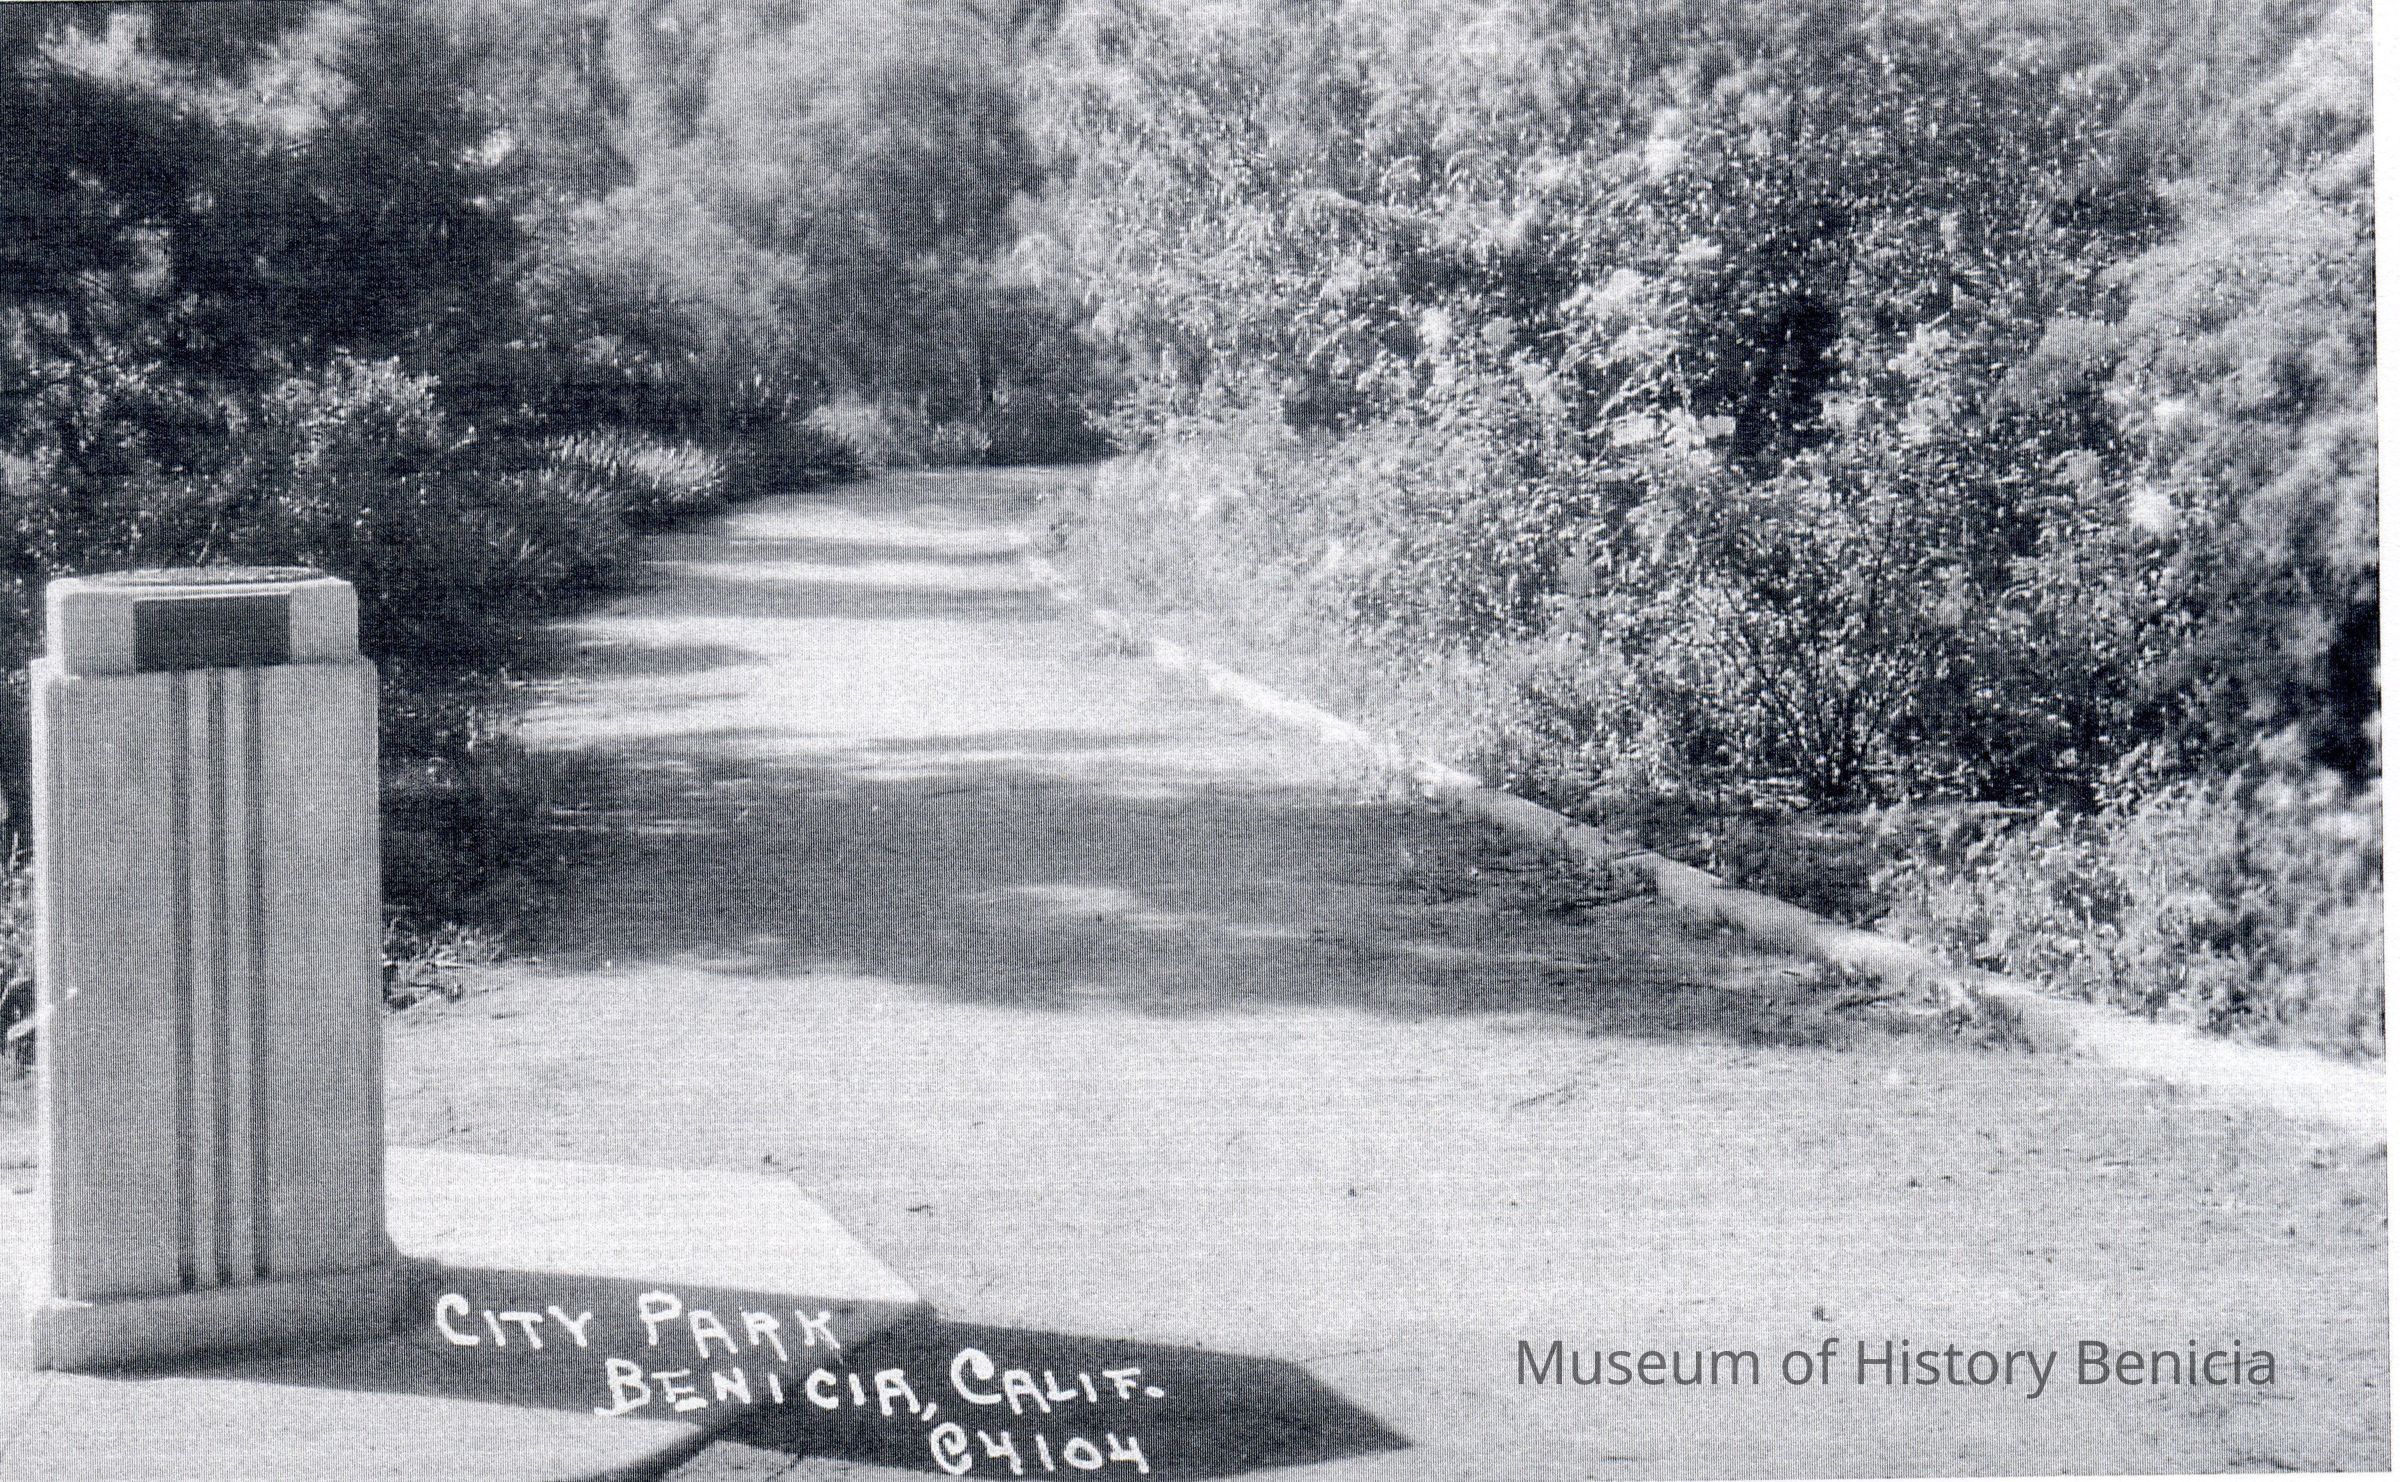 CITY PARK
BENICIA, CALIF.
C4104
Museum of History Benicia